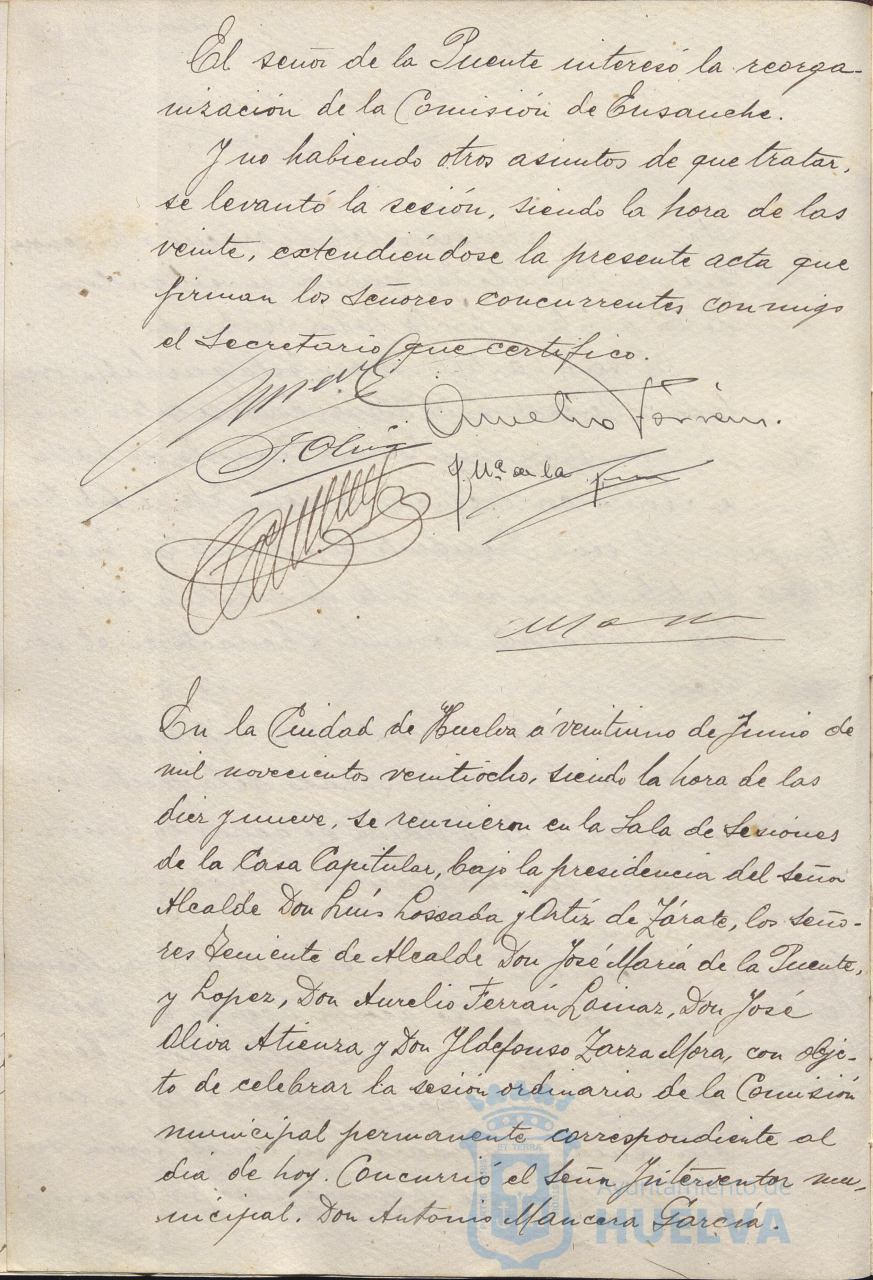 El señor de la Puente interesó la reorga-
nización de la Comisión de Ensanche.
Y no habiendo otros asuntos de que tratar,
se levantó la sesión, siendo la hora de las
veinte, extendiéndose la presente acta que
firman los señores concurrentes conmigo
el Secretario que certifico.
Aurelio Ferrán.
J. Oliva
J. Mª de la
En la Ciudad de Huelva á veintiuno de Junio de
mil novecientos veintiocho, siendo la hora de las
diez y nueve, se reunieron en la Sala de Sesiones
de la Casa Capitular, bajo la presidencia del señor
Alcalde Don Luís Lossada y Ortíz de Zárate, los seño-
res Teniente de Alcalde Don José María de la Puente,
y Lopez, Don Aurelio Ferrán Lainaz, Don José
Oliva Atienza y Don Yldefonso Zarza Mora, con obje-
to de celebrar la sesión ordinaria de la Comisión
municipal permanente correspondiente al
día de hoy. Concurrió el señor Interventor mu-
nicipal. Don Antonio Mancera García.
Ayuntamiento de
HUELVA